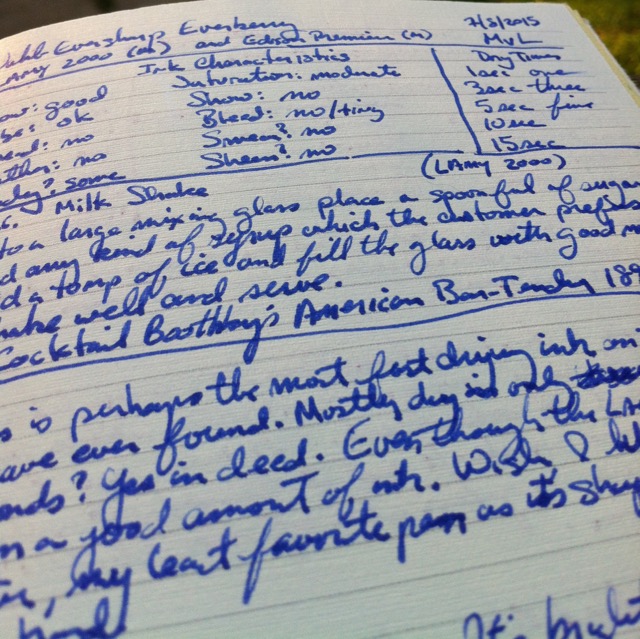 Eversharp Everberry
7/5/2015
Lamy 2000 (m) and Edison Premiere (m)
MVL
Ink Characteristics
Dry Times
Saturation: moderate
1 sec one
good
Show: no
3 sec three
ok
Bleed: no/tiny
5 sec five
no
Smear?: no
10 sec
no
Sheen?: no
15 sec
some
(LAmy 2000)
Milk Shake
to a large mixing glass place a spoonful of sugar
any kind of syrup which the customer prefers
a lump of ice and fill the glass with good
shake well and serve.
Cocktail Boothby's American Bar-Tender 189
is perhaps the most fast drying ink
have ever found. Mostly dry in only
? Yes indeed. Even though the LA
a good amount of ink. Wish I
, my least favorite pen as its
It's